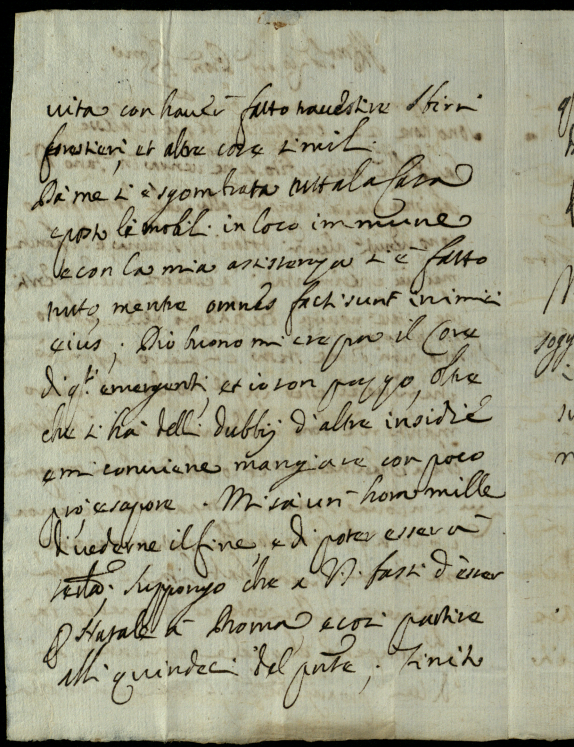 vita con haver fatto travestire sbirri
forestieri, et altre cose simili.
Da me si è sgombrata tutta la Casa
e posti li mobili in loco immune
e con la mia assistenza si è fatto
tutto, mentre omnes facti sunt inimici
eius; Dio buono mi crepa il Core
di q.ti emergenti, et io son pazzo, oltre
che si ha delli dubbij d'altre insidie
e mi conviene mangiare con poco
prò, e sapore. Mi sà un' hora mille
di vederne il fine, e di poter esser à
Suppongo che a N. fasti d'esser
Natale à Roma, e così partire
alli quindeci del pnte; finito